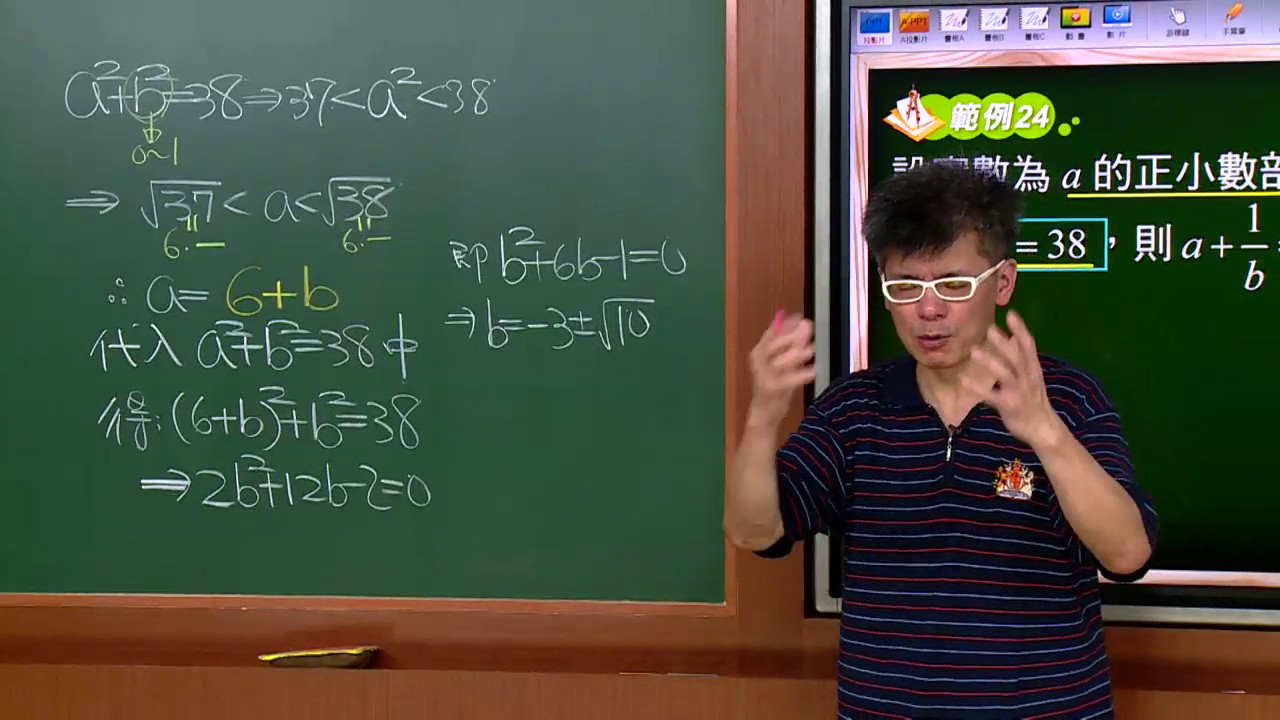 a²+b²=38⇒37<a²<38
0~1
⇒ √37 < a < √38
6. 6.
∴ a = 6+b
代入 a²+b²=38 中
得: (6+b)²+b²=38
⇒ 2b²+12b-2=0
即 b²+6b-1=0
⇒ b=-3±√10
投影片 A投影片 畫板A 畫板B 畫板C 動畫 影片 游標鍵 手寫筆
範例24
數為 a 的正小數部
= 38 ,則 a + 1/b